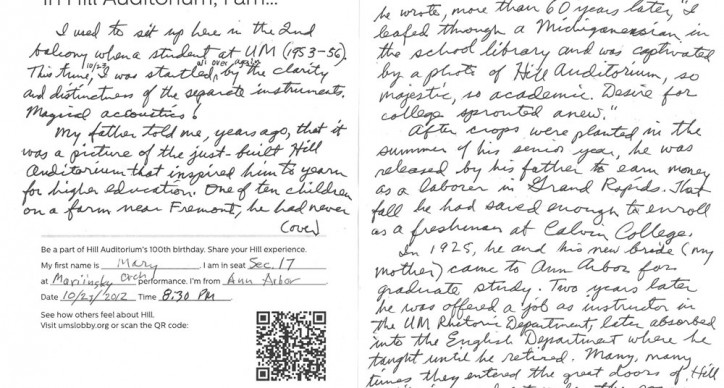 In Hill Auditorium, I am...
I used to sit up here in the 2nd
balcony when a student at UM (1953-56).
This time, 10/23, I was startled, all over again, by the clarity
and distinctness of the separate instruments.
Magical acoustics!
My father told me, years ago, that it
was a picture of the just-built Hill
Auditorium that inspired him to yearn
for higher education. One of ten children
on a farm near Fremont, he had never
(over)
Be a part of Hill Auditorium's 100th birthday. Share your Hill experience.
My first name is Mary. I am in seat Sec. 17
at Mariinsky Orch performance. I'm from Ann Arbor
Date 10/27/2012 Time 8:30 PM
See how others feel about Hill.
Visit umslobby.org or scan the QR code:
he wrote, more than 60 years later, "I
leafed through a Michiganensian in
the school library and was captivated
by a photo of Hill Auditorium, so
majestic, so academic. Desire for
college sprouted anew."
After crops were planted in the
summer of his senior year, he was
released by his father to earn money
as a laborer in Grand Rapids. That
fall he had saved enough to enroll
as a freshman at Calvin College.
In 1925, he and his new bride (my
mother) came to Ann Arbor for
graduate study. Two years later
he was offered a job as instructor in
the UM Rhetoric Department, later absorbed
into the English Department where he
taught until he retired. Many, many
times they entered the great doors of Hill